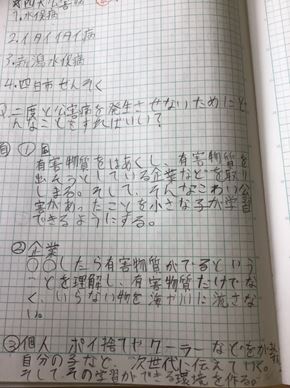 四大公害病
1.水俣病
2.イタイイタイ病
3.新潟水俣病
4.四日市ぜんそく
Q.二度と公害病を発生させないためにど
んなことをすればいい?
自 ① 国
有害物質をはあくし、有害物質を
出そうとしている企業などを取り
しまる。そして、そんなこわい公
害があったことを小さな子が学習
できるようにする。
② 企業
○○したら有害物質がでるという
ことを理解し、有害物質だけでな
く、いらない物を海や川に流さな
い。
③ 個人 ポイ捨てやクーラーなどを
自分の子など、次世代に伝えていく。
そしてその学習ができる環境を作る。